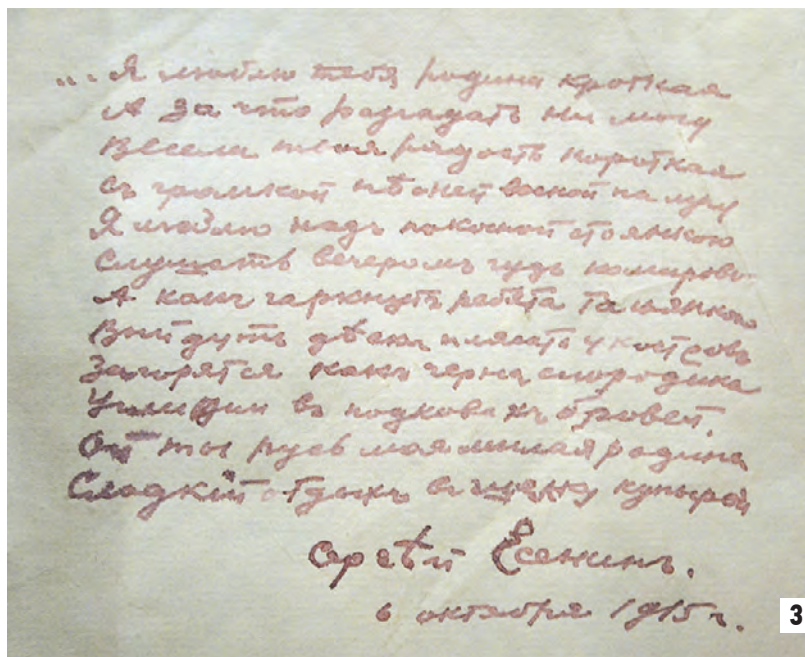 ... Я люблю тебя, родина кроткая
А за что разгадать ни могу
Весела твоя радость короткая
съ громкой пѣсней весной на лугу
Я люблю надъ покосной стоянкою
Слушать вечеромъ гудъ комаровъ
А какъ гаркнутъ ребята тальянкою
Выйдутъ дѣвки плясать у костровъ
Загорятся какъ черна смородина
Угли очи въ подковахъ бровей.
Ой ты русь моя милая родина
Сладкій отдыхъ въ шелку купырей
Сергѣй Есенинъ.
6 октября 1915 г.
3